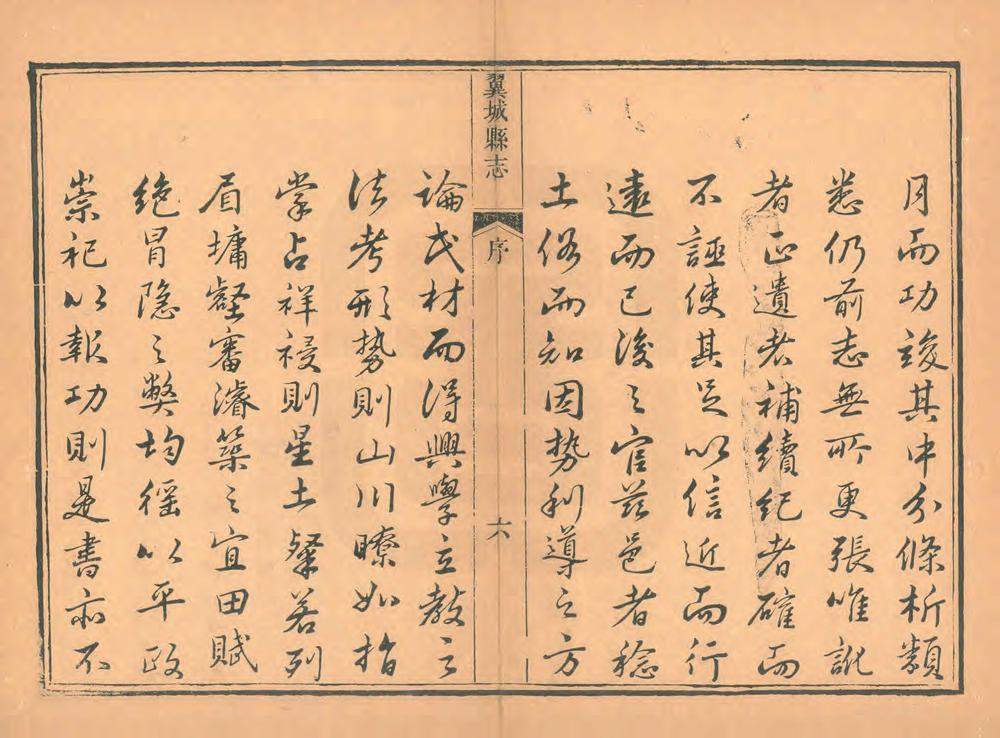 月而功竣其中分條析類
悉仍前志無所更張唯訛
者正遺者補續紀者確而
不誣使其足以信近而行
遠而已後之官茲邑者稔
土俗而知因勢利導之方
翼城縣志
序
六
論民材而得興學立教之
法考形勢則山川瞭如指
掌占祥祲則星土粲若列
眉墉壑審濬築之宜田賦
絕冒隱之弊均徭以平政
崇祀以報功則是書亦不